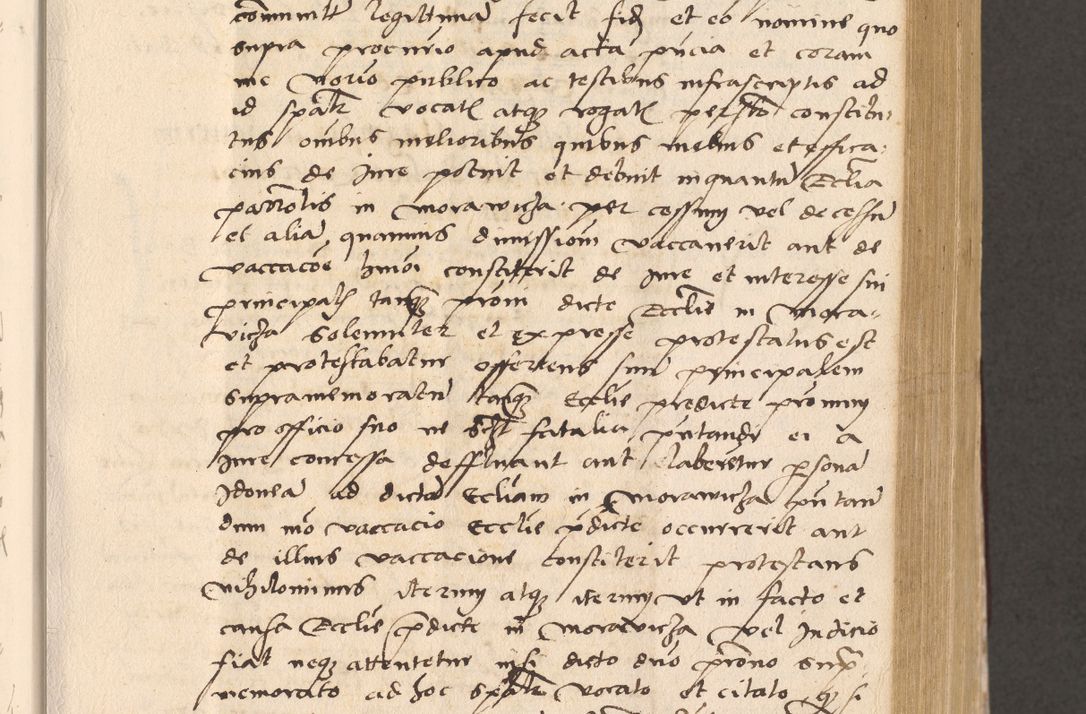 committ legittima fecit fid et eo nomine quo
supra procurio apud acta pncia et coram
me Norio publico ac testibus infrascriptis ad
id spalr vocatl atq rogatl personlr constitu
tus omibus melioribus quibus melius et effica
cius de Jure potuit et debuit in quantu Ecclia
parrolis in Morawicza per cessum vel decessu
et alia quamuis dimissiom vaccauerit aut de
vaccacoe hmoi constiterit de Jure et interesse sui
principalis tanq proni dicte Ecclie in Mora
wicza solemniter et expresse protestatus est
et protestabatur offerens suu principalem
supramemoratu tanq Ecclie predicte pronum
pro officio suo ne fatalia pntandi ei a
Jure concessa deffluant aut elaberetur psona
Idonea ad dicta Eccliam in Morawicza pntan
dum mo vaccacio Ecclie pdicte occurrerit aut
de illius vaccacione constiterit protestans
nihilominus iterum atq iterum vt in facto et
causa Ecclie pdicte in Morawicza vel Indicio
fiat neq attentetur nisi dicto dno prono sup
memorato ad hoc spalr vocato et citato q si